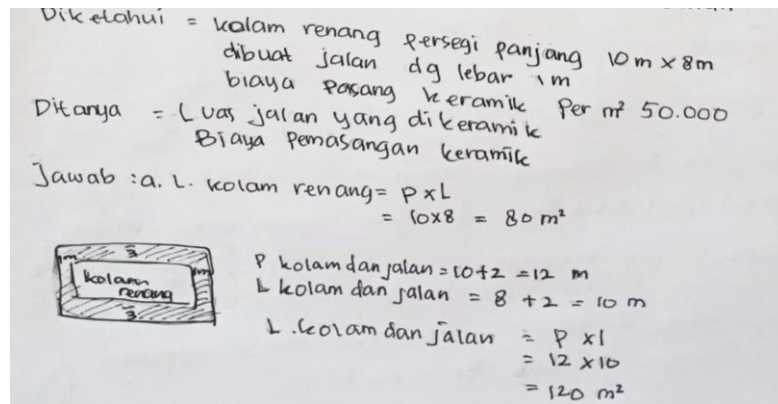 Diketahui = kolam renang persegi panjang 10 m x 8m
dibuat jalan dg lebar 1 m
biaya pasang keramik Per m² 50.000
Ditanya = Luas jalan yang di keramik
Biaya Pemasangan keramik
Jawab : a. L. kolam renang = P x L
= 10x8 = 80 m²
P kolam dan jalan = 10+2 = 12 m
L kolam dan jalan = 8 + 2 = 10 m
L. kolam dan jalan = P x l
= 12 x 10
= 120 m²
1m
1m
kolam
renang